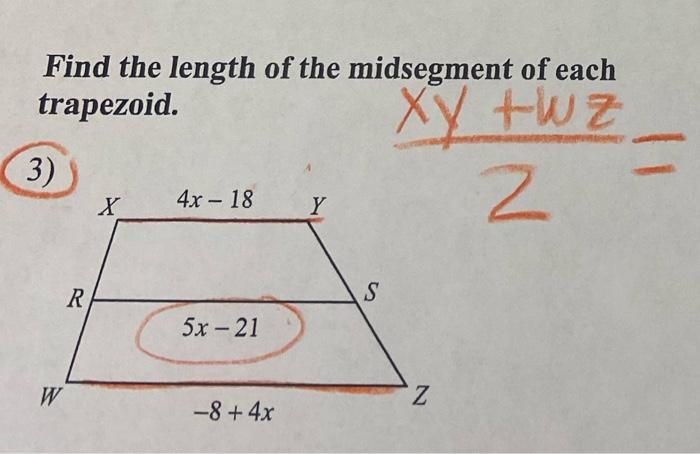 Find the length of the midsegment of each
trapezoid.
xy + wz
2
=
3)
X
4x – 18
Y
R
S
5x – 21
W
Z
–8 + 4x